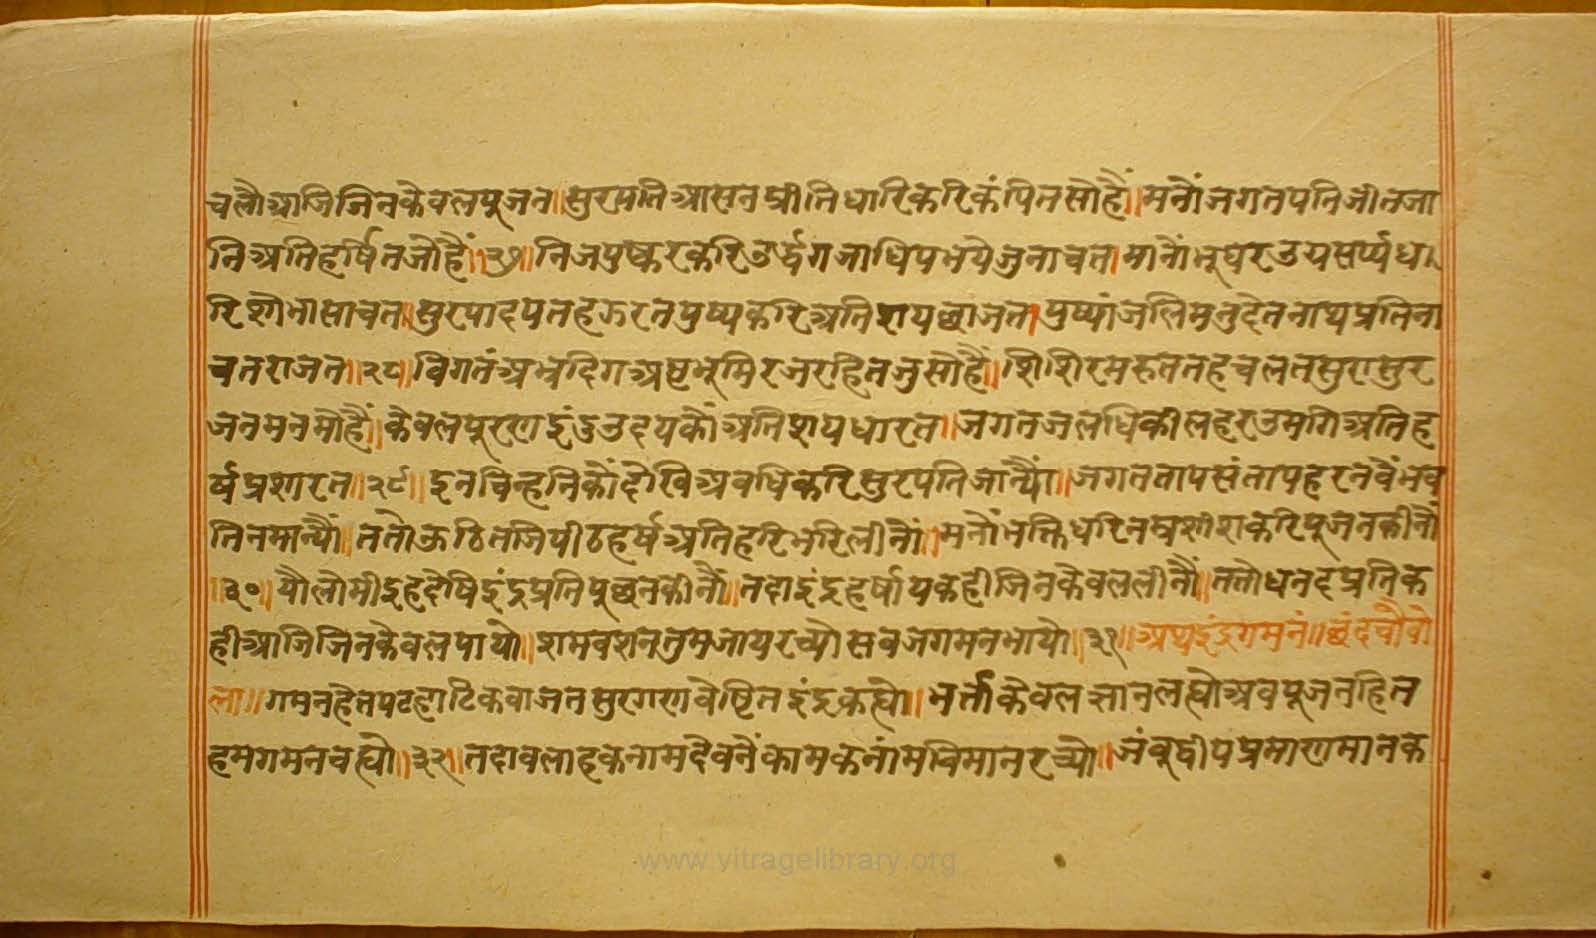 चलौआजिजिनकेवलपूजन॥सुरपतिआसनप्रीतिधारिकरिकंपितसोहैं॥मनौंजगतपतिजीतजा
निअतिहर्षितजोहैं॥२७॥निजपुष्करकरिउर्द्धगजाधिपभयेजुनाचत।मानौंभूधरउयसर्प्पधा
रिशोभासाचत॥सुरपादपतहऊरतपुष्पकरिअतिशयछाजत।पुष्पांजलिमनुदेतनाथप्रतिना
चतराजत॥२८॥विगतंअभ्रदिगअष्टभूमिरजरहितजुसोहैं॥शिशिरमरुततहचलतसुरासुर
जनमनमोहैं॥केवलपूरणइंदुउदयकौंअतिशयधारत॥जगतजलधिकीलहरउमगिअतिह
र्षप्रशारत॥२९॥इनचिन्हनिकौंदेखिअवधिकरिसुरपतिजान्यौं॥जगततापसंतापहरनवैंभव
तिनमान्यौं॥ततोऊठितजिपीठहर्षअतिहरिभरिलीनौं॥मनौंभक्तिधरिनम्रशीशकरिपूजनकीनौं
॥३०॥यौलोमीइहदेषिइंद्रप्रतिपूछनकीनौं॥तदाइंद्रहर्षायकहीजिनकेवललीनौं॥ततोधनदप्रतिक
हीआजिजिनकेवलपायो॥शमवशनतुमजायरच्योसवजगमनभायो॥३१॥अथइंद्रगमनं॥छंदचौवो
ला॥गमनहेतपटहाटिकवाजतसुरगणवेष्टितइंद्रकह्यो॥भर्त्ताकेवलज्ञानलह्योअवपूजनहित
हमगमनचह्यो॥३२॥तदावलाहकनामदेवनैंकामकनांमविमानरच्यो॥जंवूद्वीपप्रमाणमानक
www.vitragelibrary.org